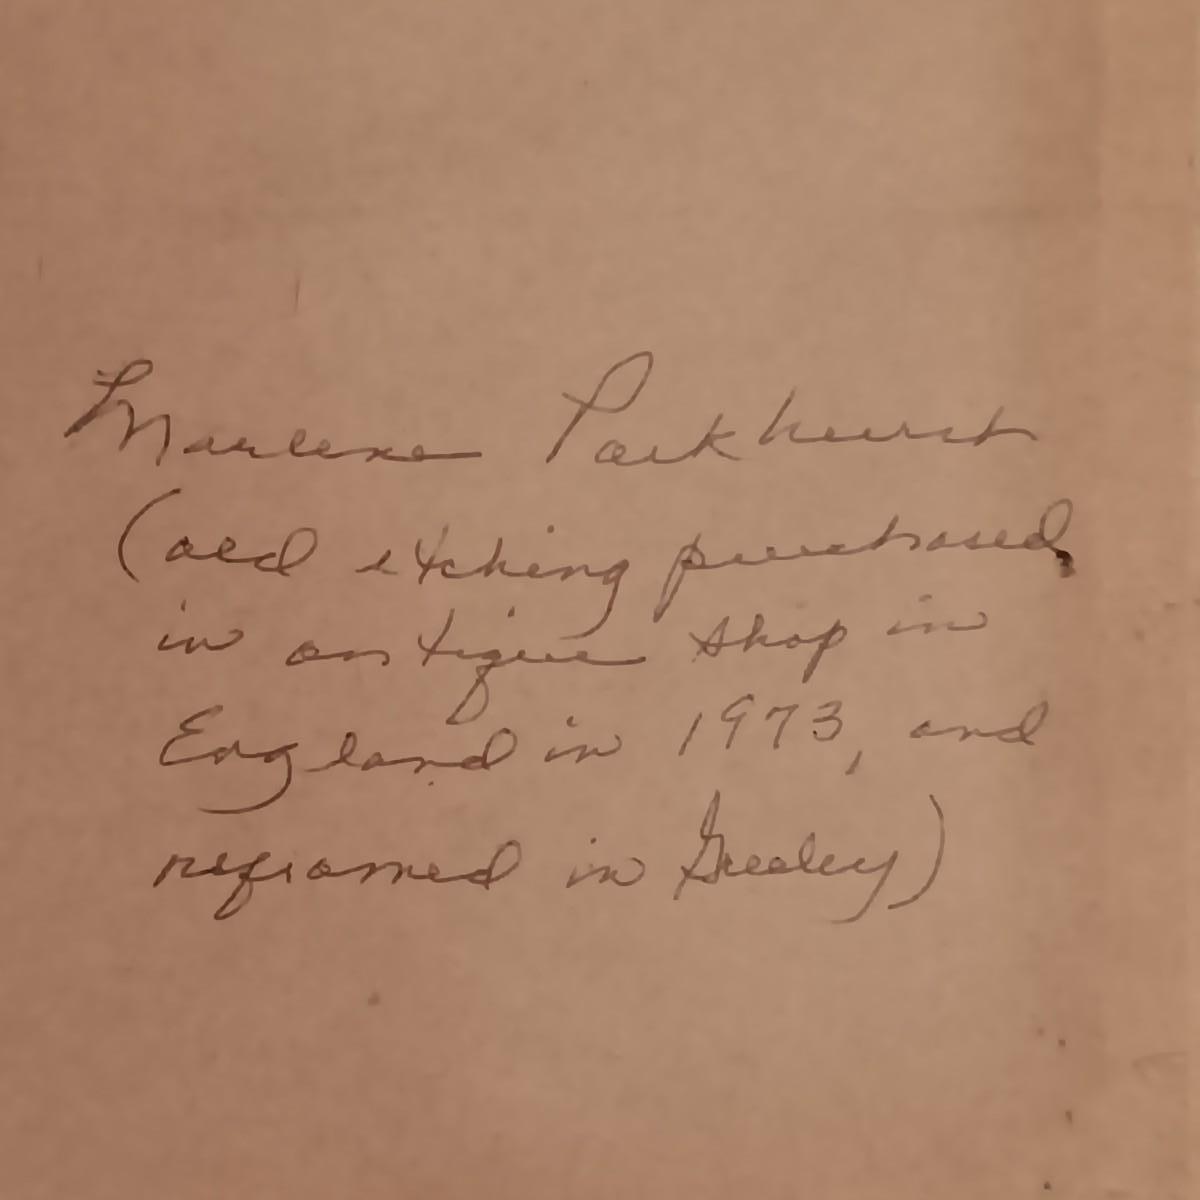 Marlene Parkhurst
(old etching purchased
in antique shop in
England in 1973, and
reframed in Greeley)